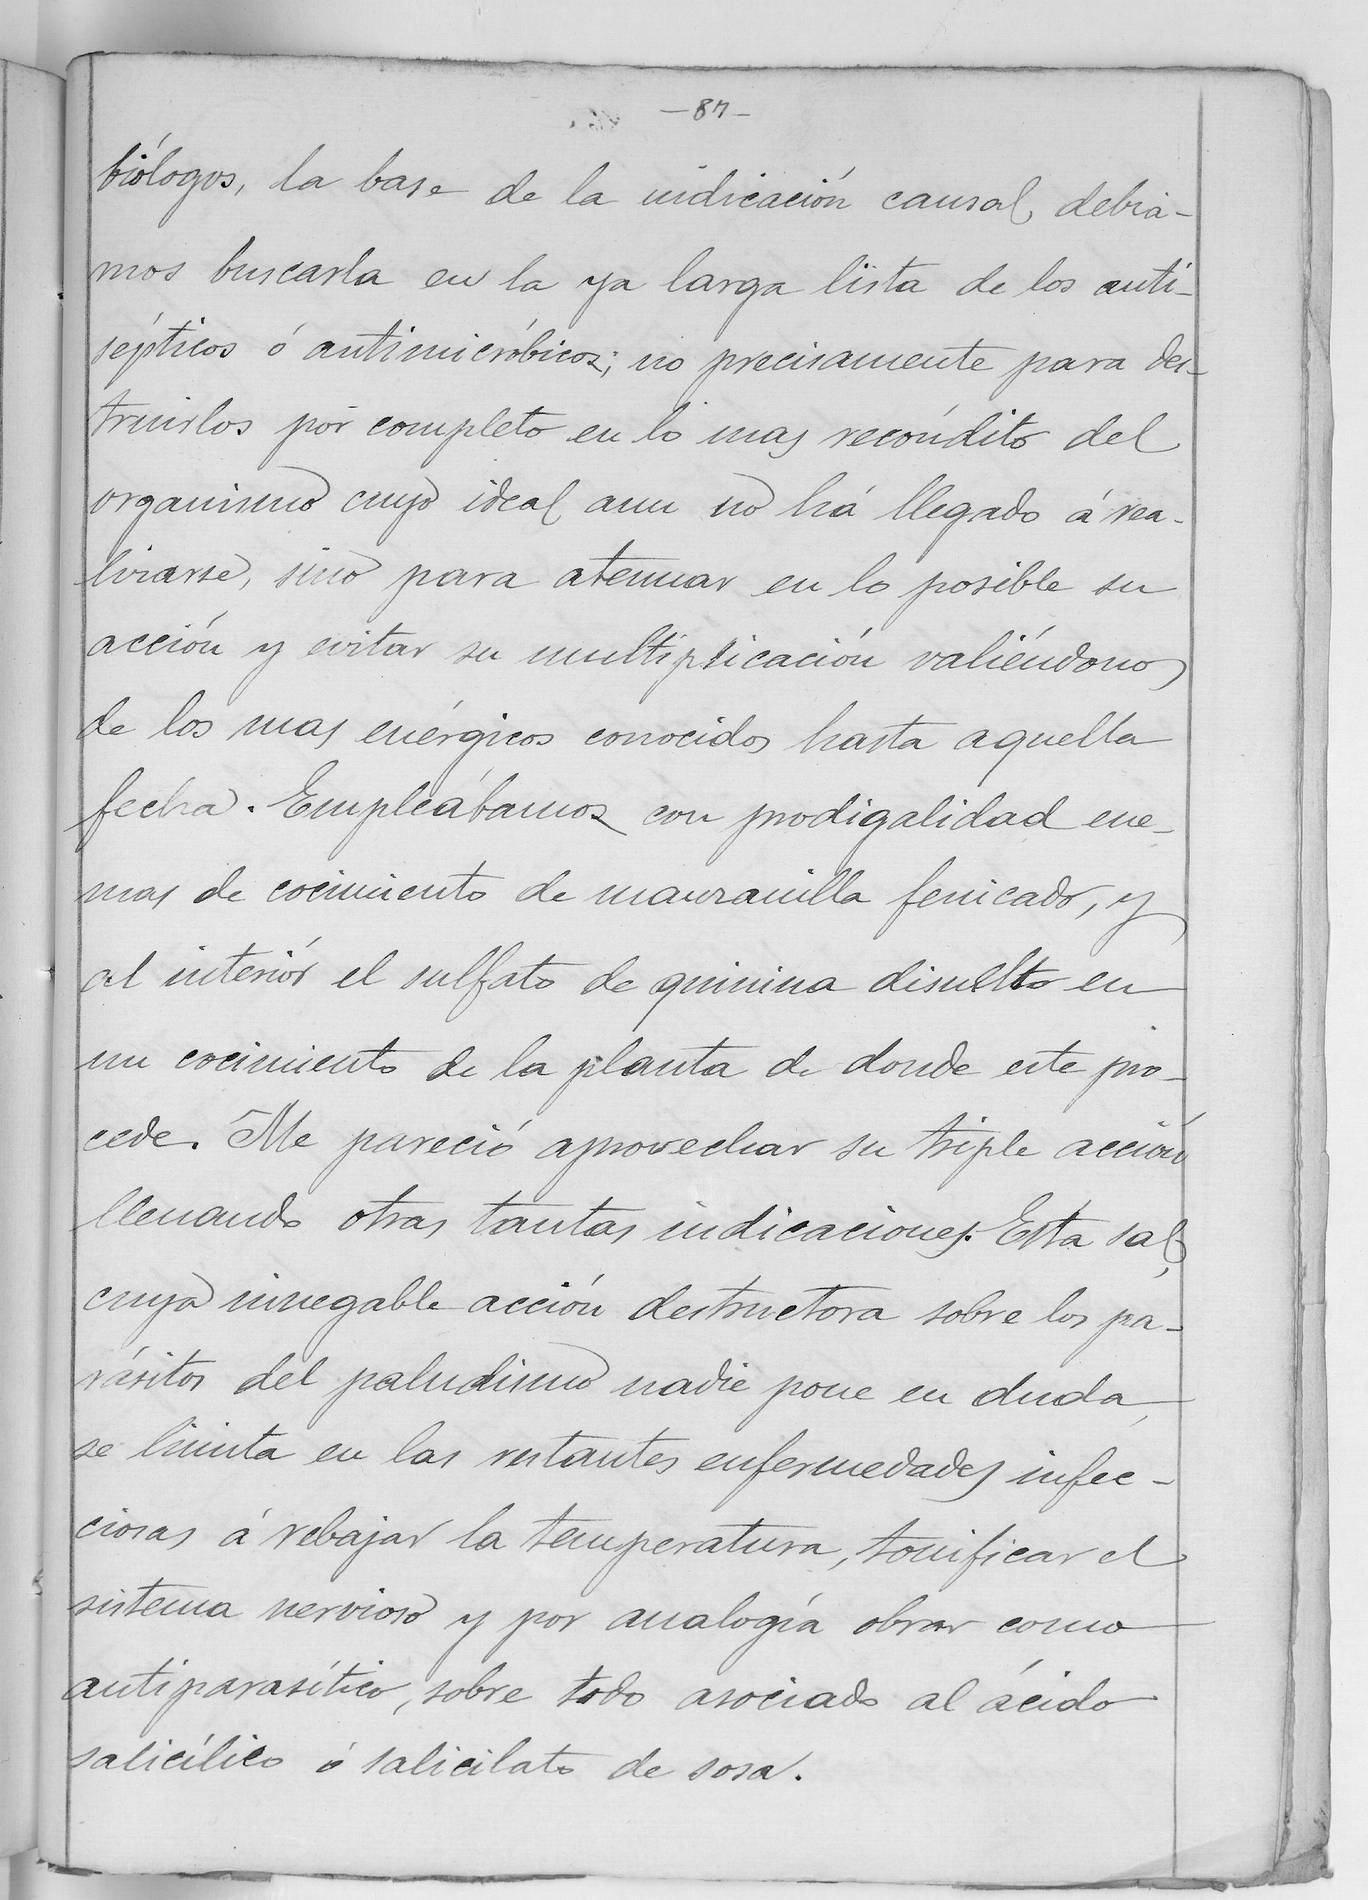 -87-
biólogos, la base de la indicación causal, debia-
mos buscarla en la ya larga lista de los anti-
sépticos ó antimicróbicos; no precisamente para des-
truirlos por completo en lo mas recóndito del
organismo cuyo ideal aun no há llegado á rea-
lizarse, sino para atenuar en lo posible su
acción y evitar su multiplicación valiéndonos
de los mas enérgicos conocidos hasta aquella
fecha. Empleábamos con prodigalidad ene-
mas de cocimiento de manzanilla fenicado, y
al interiór el sulfato de quinina disuelto en
un cocimiento de la planta de donde este pro-
cede. Me pareció aprovechar su triple acción
llenando otras tantas indicaciones. Esta sal,
cuya innegable acción destructora sobre los pa-
rásitos del paludismo nadie pone en duda,
se limita en las restantes enfermedades infec-
ciosas á rebajar la temperatura, tonificar el
sistema nervioso y por analogía obrar como
antiparasítico, sobre todo asociado al ácido
salicílico ó salicilato de sosa.